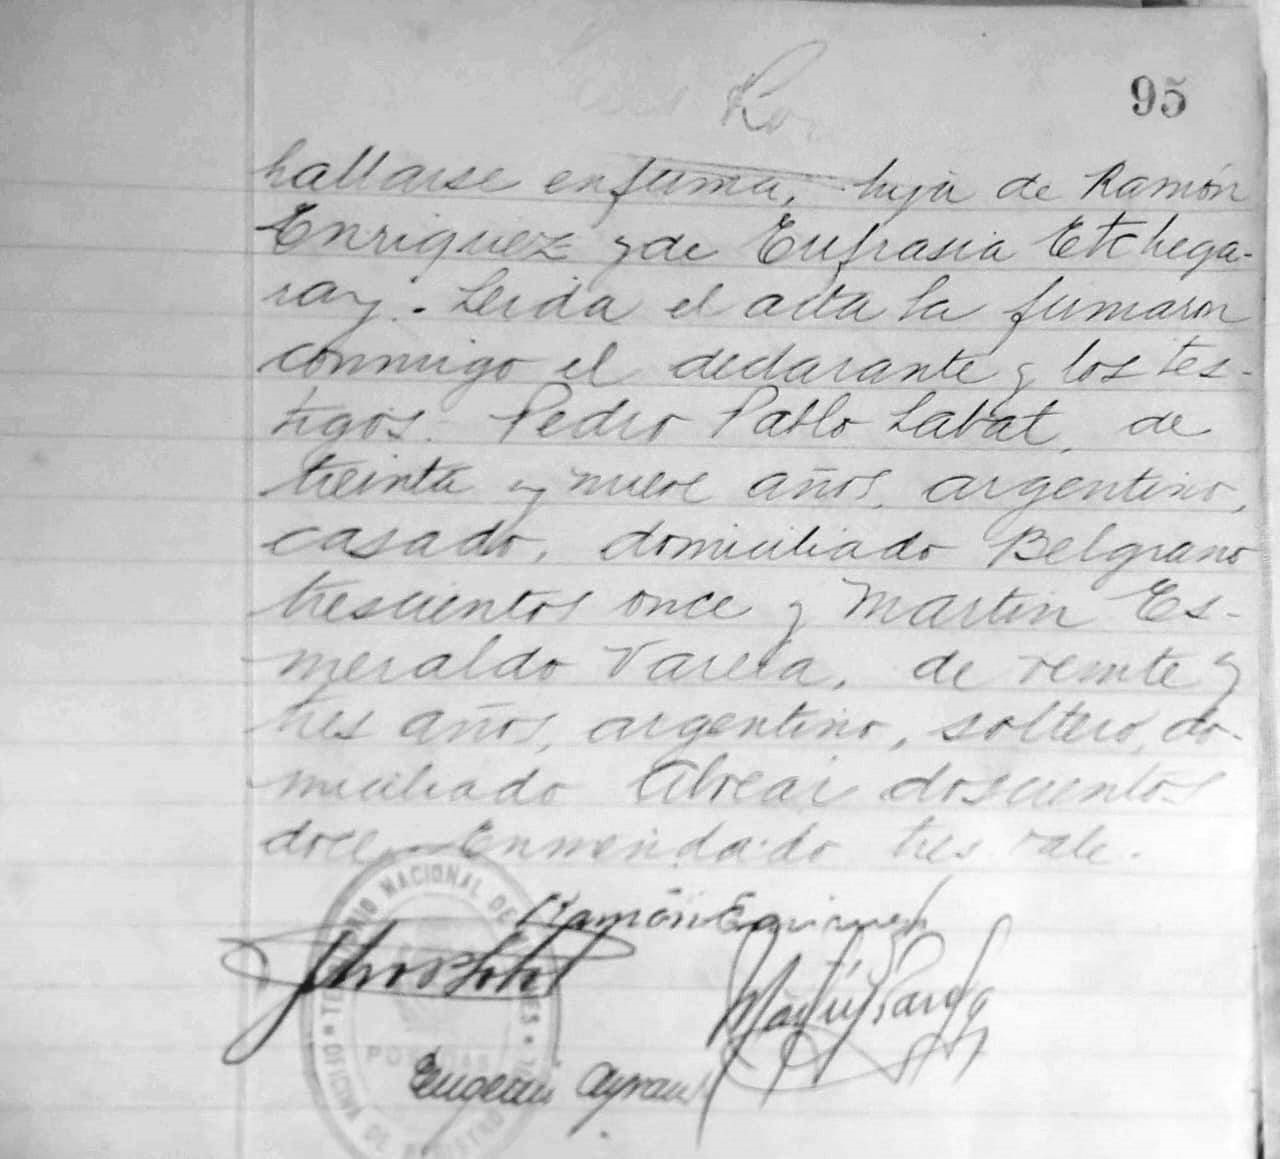 95
hallarse enferma, hija de Ramón
Enriquez y de Eufrasia Etchega-
ray. Leida el acta la firmaron
conmigo el declarante y los tes-
tigos: Pedro Pablo Labat, de
treinta y nueve años, argentino,
casado, domiciliado Belgrano
trescientos once y Martin Es-
meraldo Varela, de veinte y
tres años, argentino, soltero, do-
miciliado Alvear doscientos
doce. Enmendado: tres. Vale.
Ramón Enriquez
TERRITORIO NACIONAL DE MISIONES
POSADAS